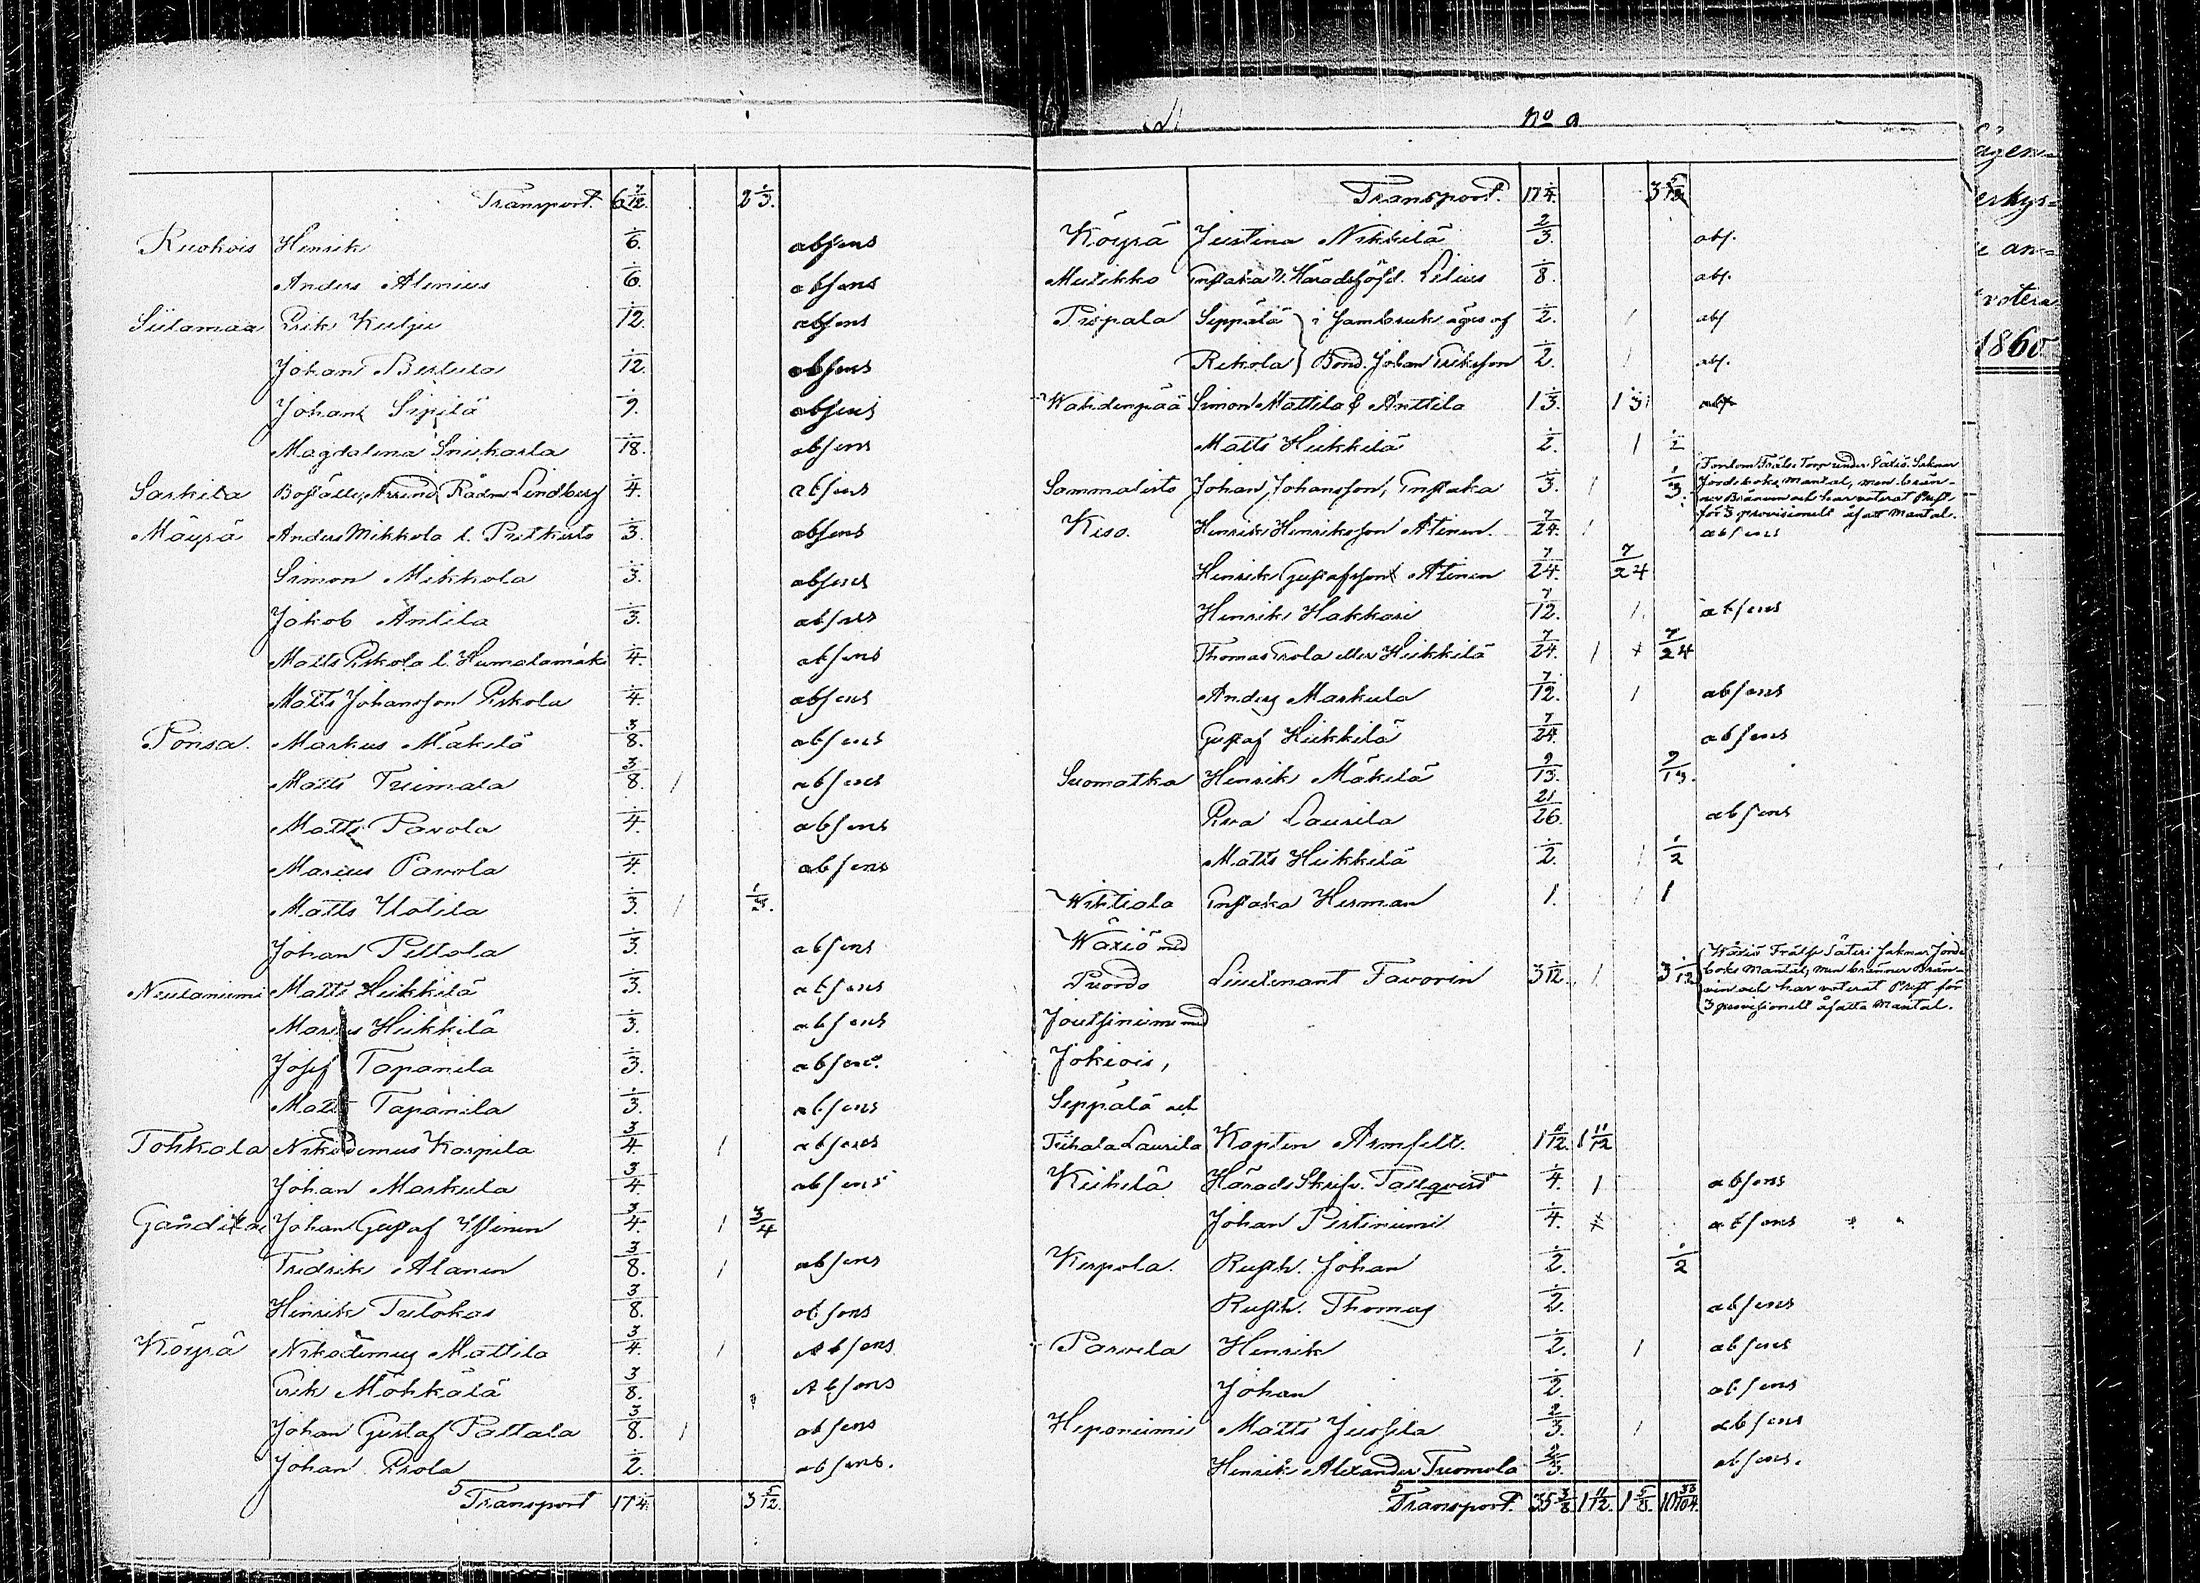 Transport. 6 7/12. 2 1/3.
Ruohois Henrik 1/6. absens
Anders Alenius 1/6. absens
Siilamaa Erik Kulju 1/12. absens
Johan Berlura 1/12. absens
Johan Sipilä 1/9. absens
Magdalena Snickarla 1/18. absens
Sarkila Boställe, Arrend. Rådm Lindberg 1/4. absens
Mäyrä Anders Mikkola l. Pretkuto 1/3. absens
Simon Mikkola 1/3. absens
Jakob Antila 1/3. absens
Matts Eskola l. Humalamäki 1/4. absens
Matts Johansson Eskola 1/4. absens
Ponsa. Markus Mäkilä 3/8. absens
Matts Tuimala 3/8. 1 absens
Matts Pavola 1/4. absens
Marius Pavola 1/4. absens
Matts Uotila 1/3. 1 1/3.
Johan Peltola 1/3. absens
Neulaniemi Matts Heikkilä 1/3. absens
Marius Heikkilä 1/3. absens
Josef Tapanila 1/3. absens
Matts Tapanila 1/3. absens
Tohkala Nikodemus Karpila 3/4. 1 absens
Johan Markula 3/4. absens
Johan Gustaf Yllinen 3/4. 1 3/4
Fredrik Alanen 3/8. 1 absens
Henrik Tulokas 3/8. absens
Köyrä Nikodemus Mattila 3/4. 1 Absens
Erik Möhkälä 3/8. Absens
Johan Gustaf Paltala 3/8. 1 absens
Johan Erola 1/2. absens.
Transport 17 1/4. 3 5/12.
No
Transport. 17 1/4. 3 5/12
Köyrä Justina Nikkilä 2/3. abs.
Mulikko Enfaka v. Häradshöfd. Lilius 1/8. abs.
Pispala Seppälä } i Sambruk äges af 1/2. 1 abs
Rekola } Bond. Johan Eriksson 1/2. 1 abs.
Wahdenpää Simon Mattila & Anttila 1 1/3. 1 1/3. abs
Matts Heikkilä 1/2. 1 1/2
Sammalisto Johan Johansson, Enfaka 1/3. 1 1/3.
Fordom Frälse Torp under Säxiö. Saknar
Jordeboks Mantal, men brän-
ner Bränvin och har voterat Prest
för 1/3 provisionelt åsatt Mantal.
Kiso. Henrik Henriksson Alinen. 7/24. 1 absens
Henrik Gustafsson Alinen 7/24. 7/24
Henrik Hakkari 7/12. 1. absens
Thomas Erola eller Heikkilä 7/24. 1 x 7/24
Anders Markula 7/12. 1 absens
Gustaf Heikkilä 7/24. absens
Suomatka Henrik Mäkilä 9/13. 9/13.
Eva Laurila 21/26. absens
Matts Heikkilä 1/2. 1 1/2
Wihtiala Enfaka Herman 1. 1 1
Wäxiö med
Puordo Lieutenant Favorin 3 1/12. 1. 3 1/12
Wäxiö Frälse Säteri saknar Jorde
boks Mantal, men bränner Brän-
vin och har voterat Prest för
3 provisionelt åsatta Mantal.
Joutsiniemi med
Jokiois,
Seppälä och
Tuhala Laurila Kapten Armfelt. 1 11/12. 1 11/12
Kiehilä Härads Skrifv. Tallqvist 1/4. 1 absens
Johan Pirtiniemi 1/4. x absens
Kurpola. Rusth. Johan 1/2. 1/2
Rusth. Thomas 1/2. absens
Parvela Henrik 1/2. 1 absens
Johan 1/2. absens
Heponiemi Matts Juosila 2/3. 1 absens
Henrik Alexander Tuomola 2/3. absens.
Transport. 35 3/8. 1 11/12. 1 5/8. 10 33/104.
ägen-
erkys-
e an-
votera
1860